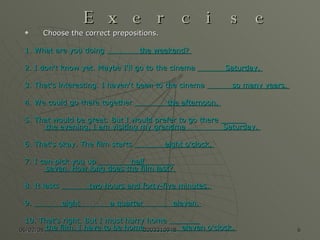 E x e r c i s e
• Choose the correct prepositions.
1. What are you doing ________ the weekend?
2. I don't know yet. Maybe I'll go to the cinema _______ Saturday.
3. That's interesting. I haven't been to the cinema _______ so many years.
4. We could go there together ________ the afternoon.
5. That would be great. But I would prefer to go there ________
the evening. I am visiting my grandma _________ Saturday.
6. That's okay. The film starts ________ eight o'clock.
7. I can pick you up ________ half ________
seven. How long does the film last?
8. It lasts _______ two hours and forty-five minutes.
9. _______ eight _______ a quarter _______ eleven.
10. That's right. But I must hurry home ________
the film. I have to be home ________ eleven o'clock.
6